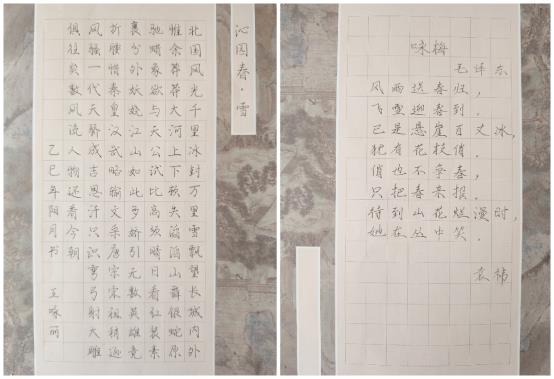 沁园春·雪
北国风光千里冰封万里雪飘望长城内外
惟余莽莽大河上下顿失滔滔山舞银蛇原
驰蜡象欲与天公试比高须晴日看红装素
裹分外妖娆江山如此多娇引无数英雄竞
折腰惜秦皇汉武略输文采唐宗宋祖稍逊
风骚一代天骄成吉思汗只识弯弓射大雕
俱往矣数风流人物还看今朝
乙巳年阳月书 王咏丽
咏梅
毛泽东
风雨送春归，
飞雪迎春到．
已是悬崖百丈冰，
犹有花枝俏．
俏也不争春，
只把春来报．
待到山花烂漫时，
她在丛中笑．